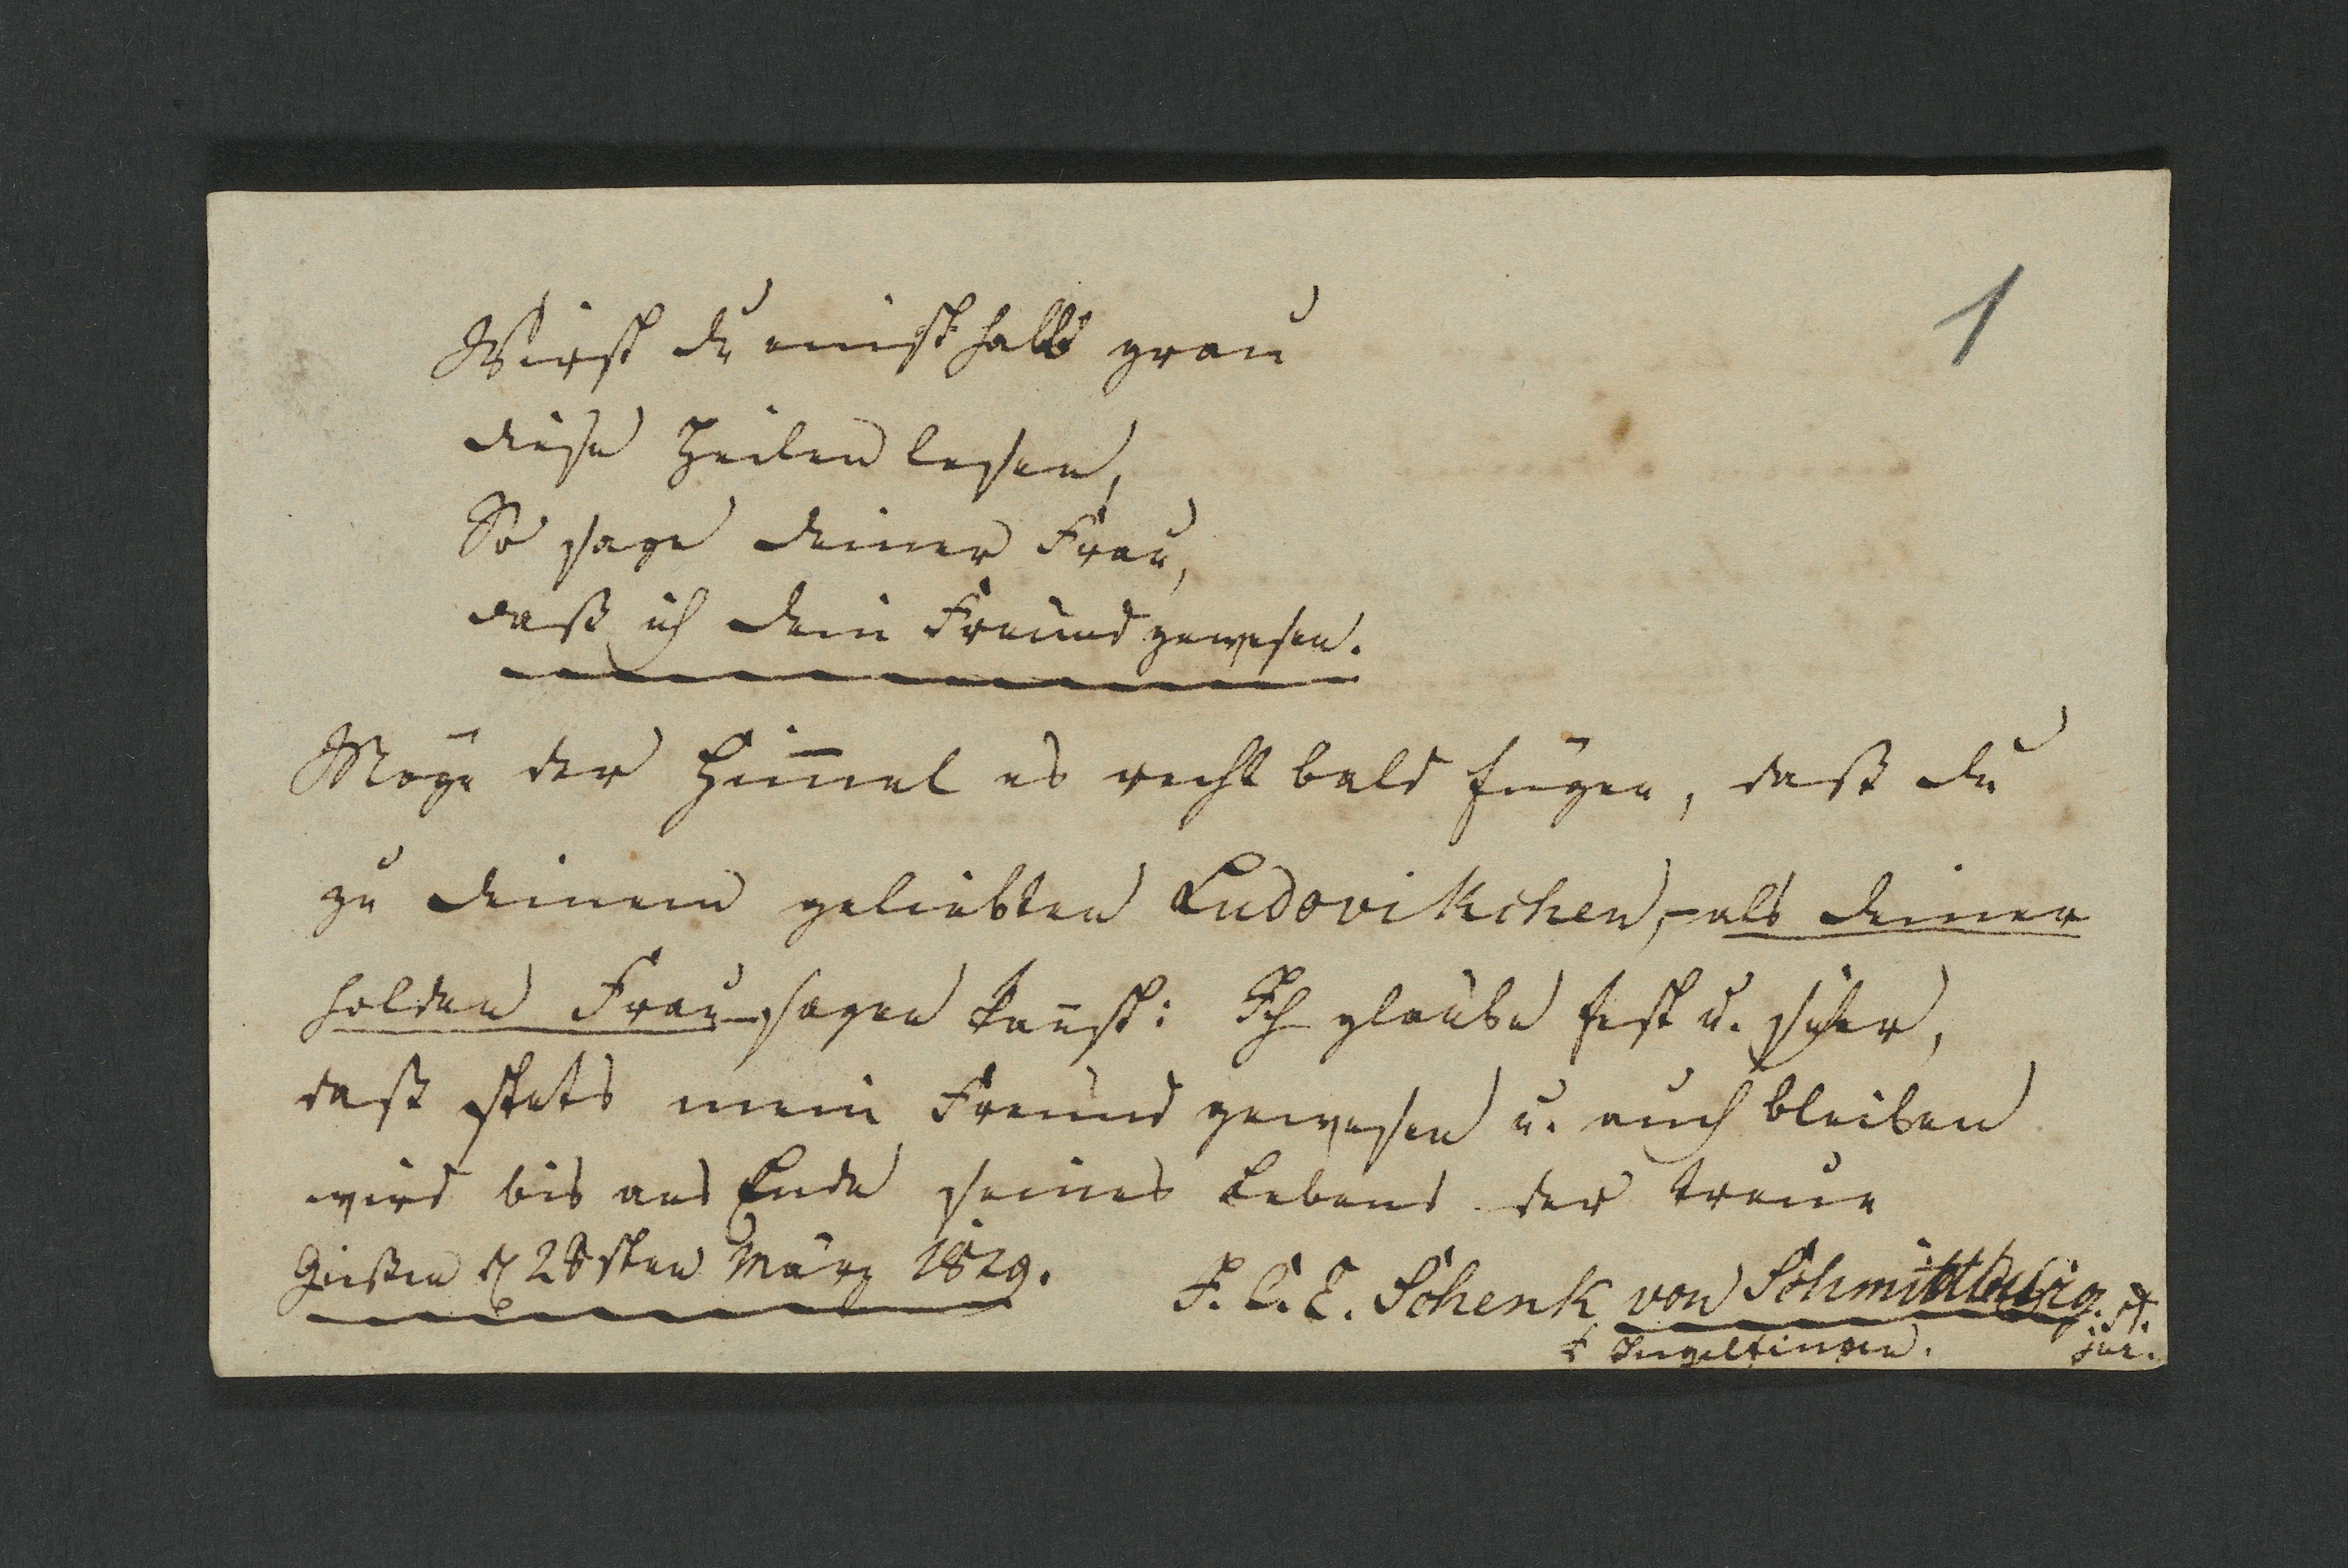 1
Wirst du einst halb grau
diese Zeilen lesen,
So sage deiner Frau,
daß ich dein Freund gewesen.
Möge der Him̅el es recht bald fügen, daß du
zu deinem geliebten Ludovikchen, – als deiner
holden Frau – sagen kan̅st: Ich glaube fest u. sicher,
daß stets mein Freund gewesen u. auch bleiben
wird bis ans Ende seines Lebens der treue
Gießen d 28sten März 1829.
F. C. E. Schenk von Schmittburg. st.
jur.